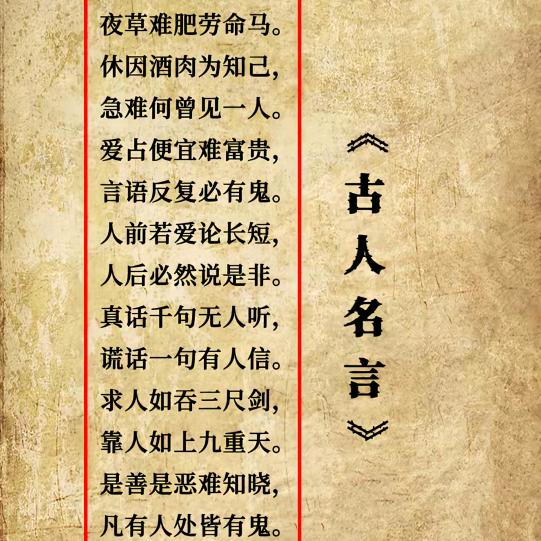 夜草难肥劳命马。
休因酒肉为知己，
急难何曾见一人。
爱占便宜难富贵，
言语反复必有鬼。
人前若爱论长短，
人后必然说是非。
真话千句无人听，
谎话一句有人信。
求人如吞三尺剑，
靠人如上九重天。
是善是恶难知晓，
凡有人处皆有鬼。
《古人名言》